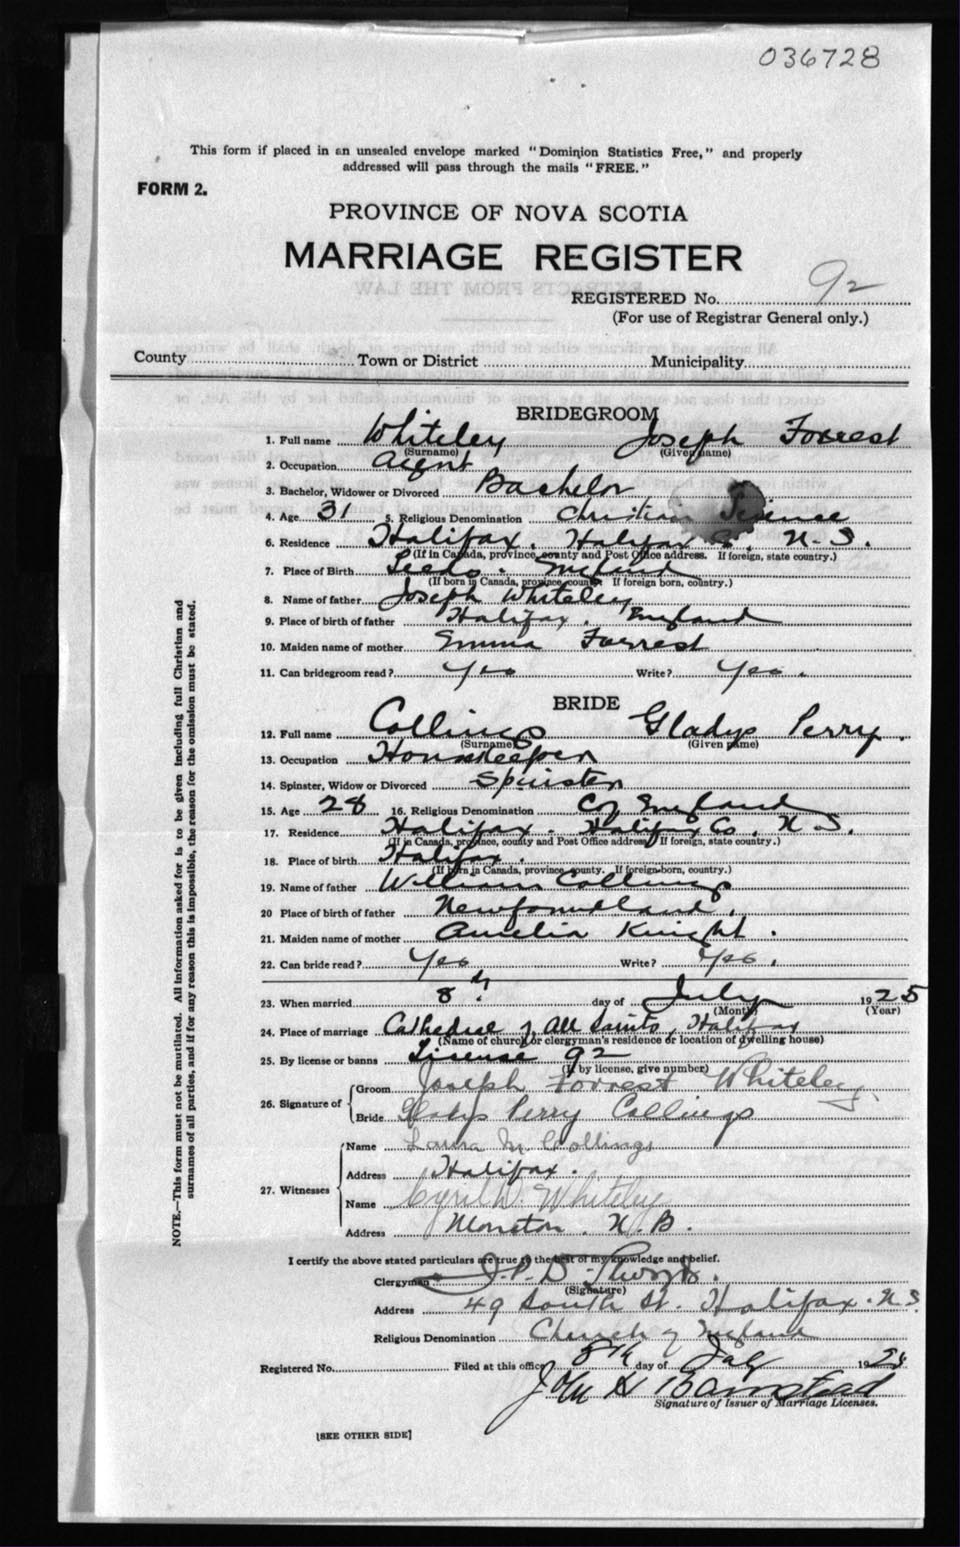 036728
This form if placed in an unsealed envelope marked "Dominion Statistics Free," and properly
addressed will pass through the mails "FREE."
FORM 2.
PROVINCE OF NOVA SCOTIA
MARRIAGE REGISTER
EXTRACTS FROM THE LAW
REGISTERED No. 92
(For use of Registrar General only.)
County Town or District Municipality
BRIDEGROOM
1. Full name Whiteley Joseph Forrest
(Surname) (Given name)
2. Occupation Agent
3. Bachelor, Widower or Divorced Bachelor
4. Age 31 5. Religious Denomination Christian Science
6. Residence Halifax. Halifax Co. N.S.
(If in Canada, province, county and Post Office address. If foreign, state country.)
7. Place of Birth Leeds. England
(If born in Canada, province, county. If foreign born, country.)
8. Name of father Joseph Whiteley
9. Place of birth of father Halifax. England
10. Maiden name of mother Emma Forrest
11. Can bridegroom read? Yes Write? Yes.
BRIDE
12. Full name Collings Gladys Perry.
(Surname) (Given name)
13. Occupation Housekeeper
14. Spinster, Widow or Divorced Spinster
15. Age 28 16. Religious Denomination C of England
17. Residence Halifax. Halifax Co. N.S.
(If in Canada, province, county and Post Office address. If foreign, state country.)
18. Place of birth Halifax.
(If born in Canada, province, county. If foreign-born, country.)
19. Name of father William Collings
20 Place of birth of father Newfoundland.
21. Maiden name of mother Amelia Knight.
22. Can bride read? Yes Write? Yes.
23. When married 8th day of July 1925
(Month) (Year)
24. Place of marriage Cathedral of All Saints, Halifax
(Name of church or clergyman's residence or location of dwelling house)
25. By license or banns License 92
(If by license, give number)
26. Signature of
Groom Joseph Forrest Whiteley.
Bride Gladys Perry Collings
27. Witnesses
Name Laura M. Collings
Address Halifax.
Name Cyril D. Whiteley
Address Moncton. N.B.
I certify the above stated particulars are true to the best of my knowledge and belief.
Clergyman J.P.D.
(Signature)
Address 49 South St. Halifax. N.S.
Religious Denomination Church of England
Registered No. Filed at this office 8th day of July 1925
John H Barnstead
Signature of Issuer of Marriage Licenses.
[SEE OTHER SIDE]
NOTE.—This form must not be mutilated. All information asked for is to be given including full Christian and
surnames of all parties, and if for any reason this is impossible, the reason for the omission must be stated.